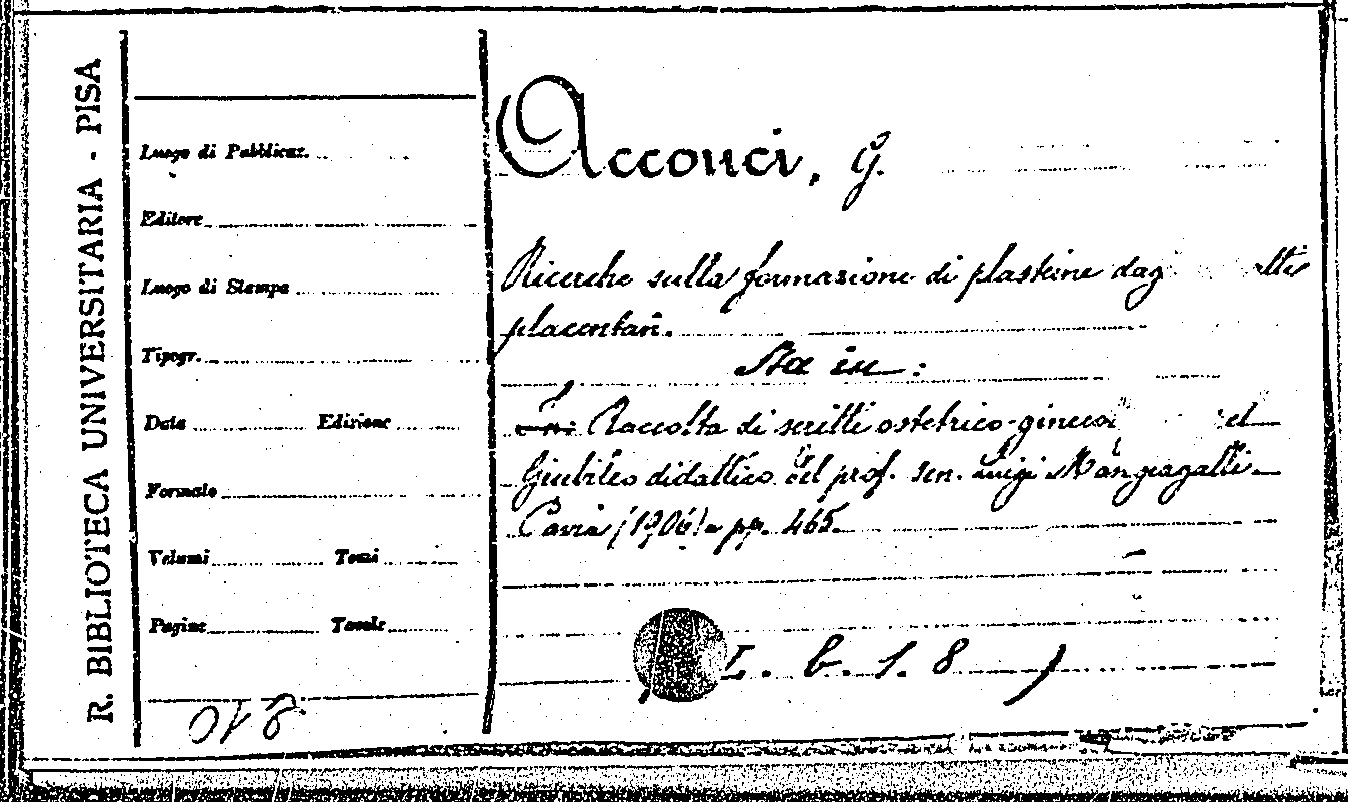 R. BIBLIOTECA UNIVERSITARIA - PISA
Luogo di Pubblicaz.
Editore
Luogo di Stampa
Tipogr.
Data Edizione
Formato
Volumi Tomi
Pagine Tavole
Acconci, G.
Ricerche sulla formazione di plasteine dag
placentari.
Sta in:
In: Raccolta di scritti ostetrico-ginecol
Giubileo didattico del prof. sen. Luigi Mangiagalli
Pavia (1906) a pp. 465.
L. b. 1. 8